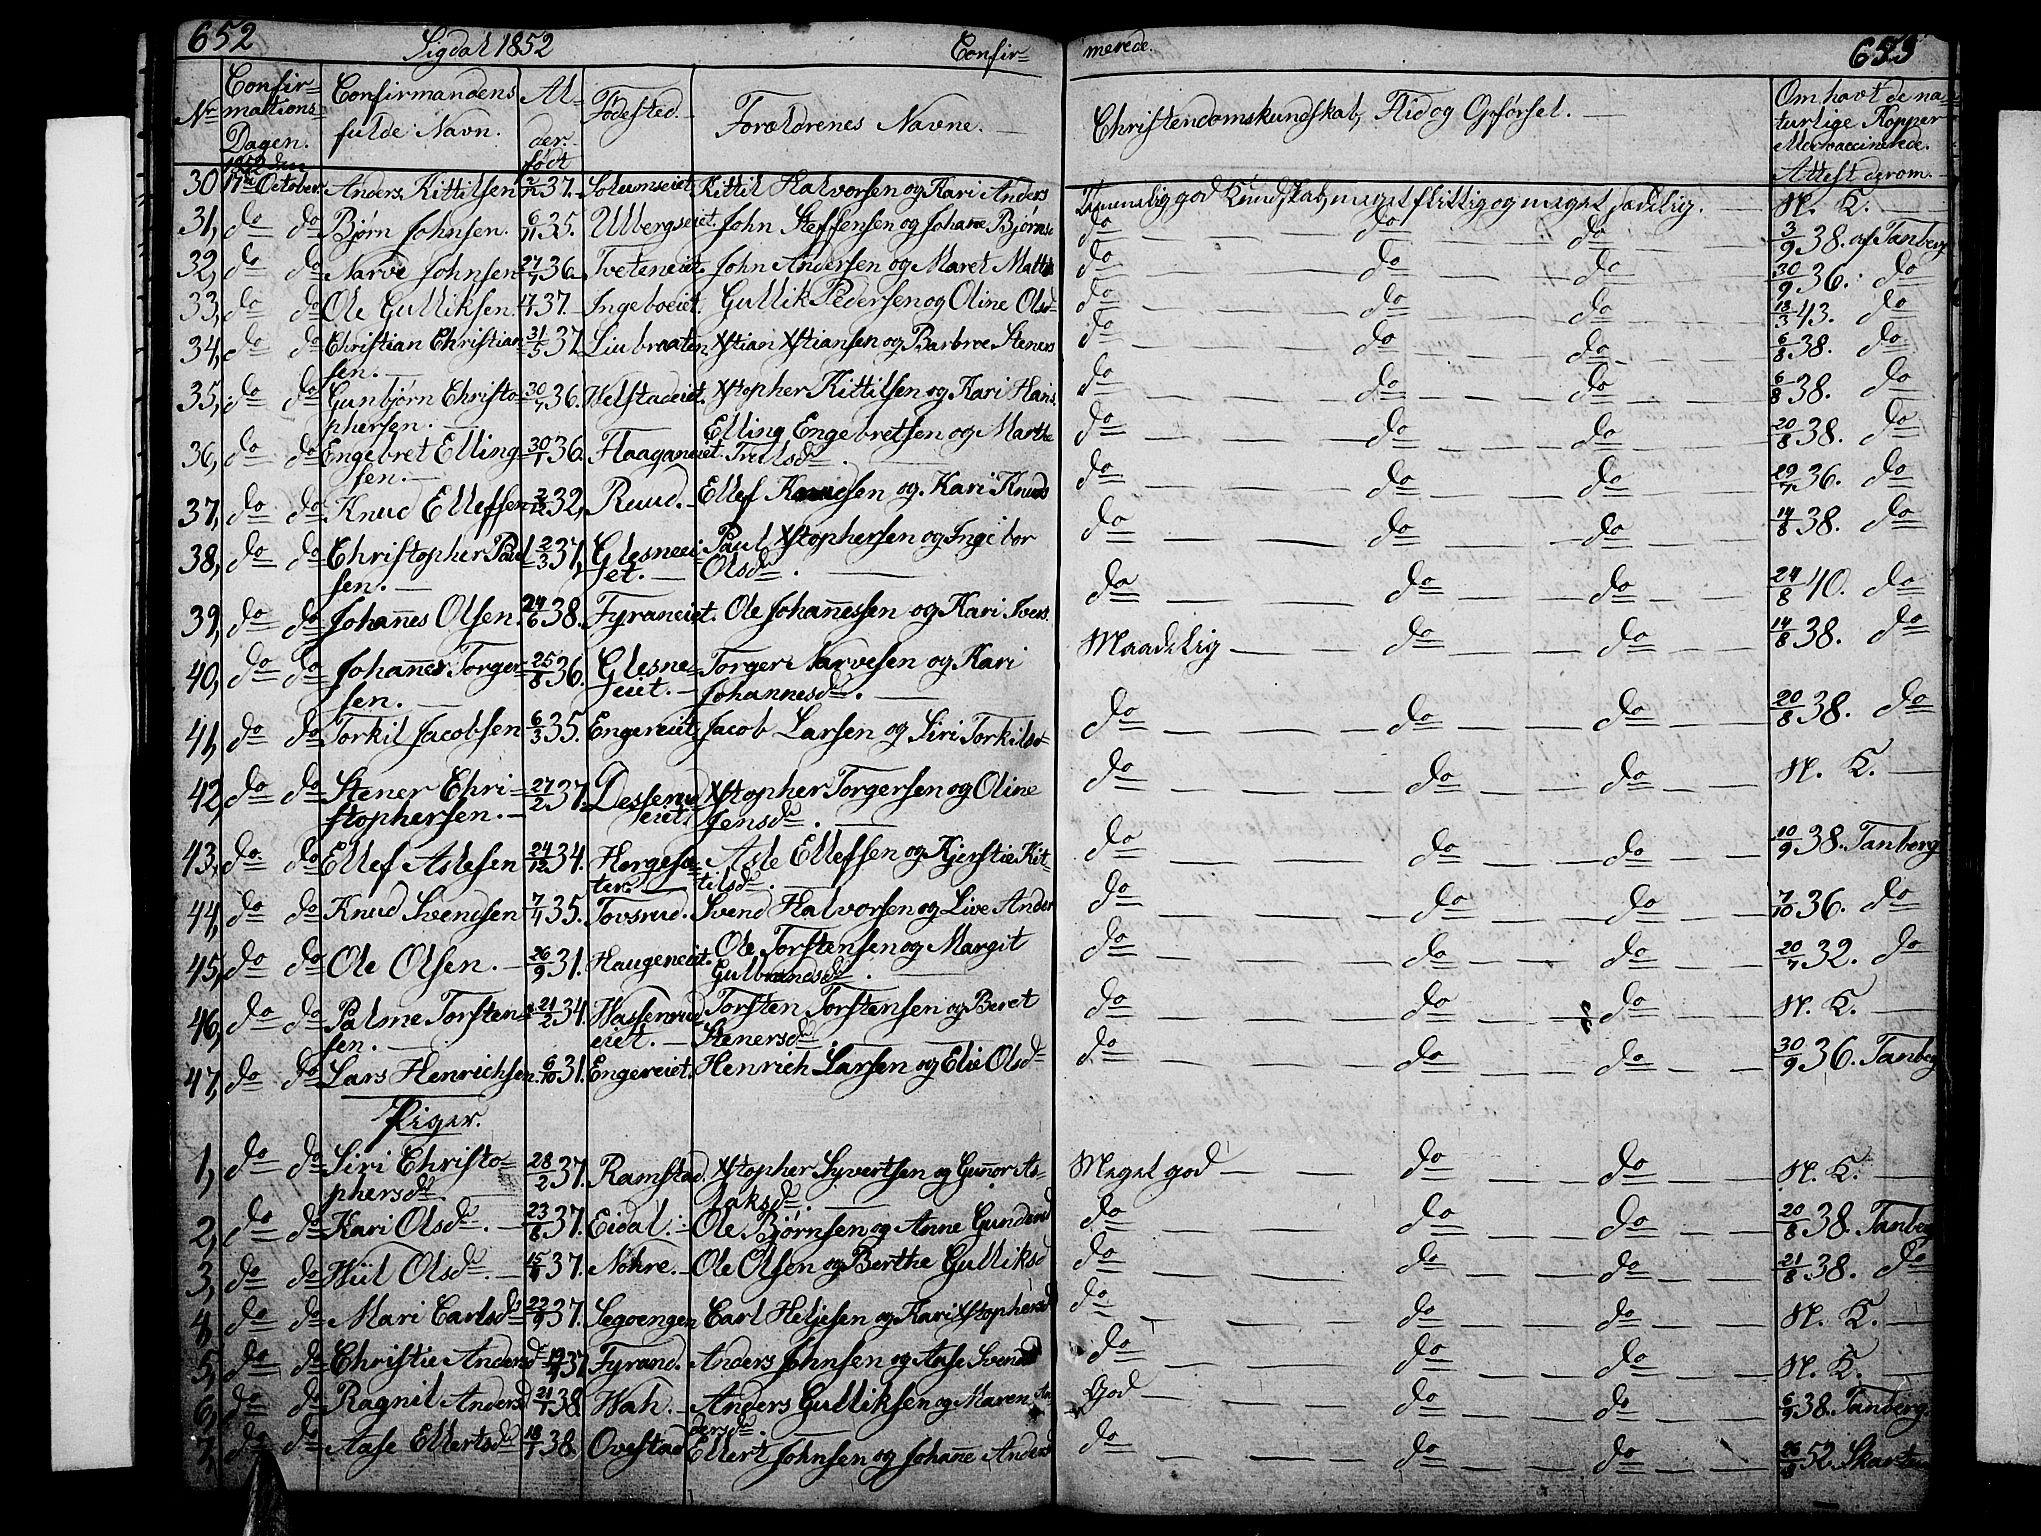 652 Sigdal 1852 Confir=
merede. 653
No Confir=mations Dagen. Confirmandens fulde Navn. Al=der. født Fødested. Forældrenes Navne. Christendomskundskab, Flid og Opførsel. Om havt de na=turlige Kopper Attest derom.
1852 den
30 17de October Anders Kittilsen 37. Solumseiet Kittil Halvorsen og Kari Anders Temmelig god Kundskab, meget flittig og meget sædelig. N. K.
31, do do Bjørn Johnsen. 6/11 35. Ulbergseiet. John Steffensen og Johanne Bjørns do do do 3/9 38. af Tanberg
32, do do Narve Johnsen 27/7 36. Tveteneiet. John Andersen og Maret Mattis do do do 30/9 36. do
33, do do Ole Gulliksen. 37. Ingeboeiet. Gullik Pedersen og Oline Olsd do do do 13/3 43. do
34, do do Christian Christian=sen. 31/5 37. Liubraaten Xstian Xstiansen og Barbroe Steners do do do 6/8 38. do
35, do do Gunbjørn Christo=phersen. 30/7 36. Helstadeiet. Xstopher Kittilsen og Kari Hans. do do do 6/8 38. do
36, do do Engebret Elling=sen. 30/1 36. Haaganeiet. Elling Engebretsen og Marthe Trulsd. do do do 20/8 38. do
37, do do Knud Ellefsen 32, Ruud. Ellef Knudsen og Kari Knuds do do do 29/7 36. do
38, do do Christopher Paul=sen. 2/3 37, Glesneei=et. Paul Xstophersen og Ingebor Olsd. do do do 14/8 38. do
39, do do Johannes Olsen. 24/6 38. Fyraneiet. Ole Johannessen og Kari Ivers. do do do 24/8 40. do
40, do do Johannes Torger=sen. 25/8 36. Glesne=eiet. Torger Narvesen og Kari Johannesd. Maadelig do do 14/8 38. do
41, do do Torkil Jacobsen 6/3 35. Engereiet Jacob Larsen og Siri Torkilsd do do do 20/8 38. do
42, do do Stener Chri=stophersen. 27/2 37. Desserudeiet Xstopher Torgersen og Oline Jensd. do do do N. K.
43. do do Ellef Aslesen 24/12 34. Horgesæter Asle Ellefsen og Kjerstie Kit=tilsd. do do do 10/9 38. Tanberg
44, do do Knud Svendsen 7/4 35. Tovsrud. Svend Halvorsen og Live Ander do do do 7/10 36. do
45, do do Ole Olsen. 26/9 31. Haugeneiet. Ole Torstensen og Margit Gulbrandsd. do do do 20/7 32. do
46, do do Palme Torsten=sen. 21/2 34. Hassenrudeiet. Torsten Torstensen og Beret Stenersd. do do do N. K.
47, do do Lars Henrichsen. 6/10 31. Engereiet. Henrich Larsen og Elie Olsd do do do 30/9 36. Tanberg
Piger.
1, do do Siri Christo=phersd 28/2 37. Ramstad. Xstopher Syvertsen og Gunor As=laksd. Meget god do do N. K.
2, do do Kari Olsd. 23/8 37. Eidal. Ole Bjørnsen og Anne Gundersd do do do 20/8 38. Tanberg
3, do do Hiil Olsd. 37. Nøkre. Ole Olsen og Berthe Gulliksd do do do 21/8 38. do
4, do do Mari Carlsd 22/9 37. Segoengen Carl Heljesen og Kari Xstophersd do do do N. K.
5, do do Christie Andersd 37. Fyrand. Anders Johnsen og Aase Svends do do do N. K.
6, do do Ragnil Andersd 21/1 38. Hah. Anders Gulliksen og Maren An=dersd. God do do 6/9 38. Tanberg.
7, do do Aase Ellertsd 18/1 38. Ovestad Ellert Johnsen og Johanne Anders do do do 52.